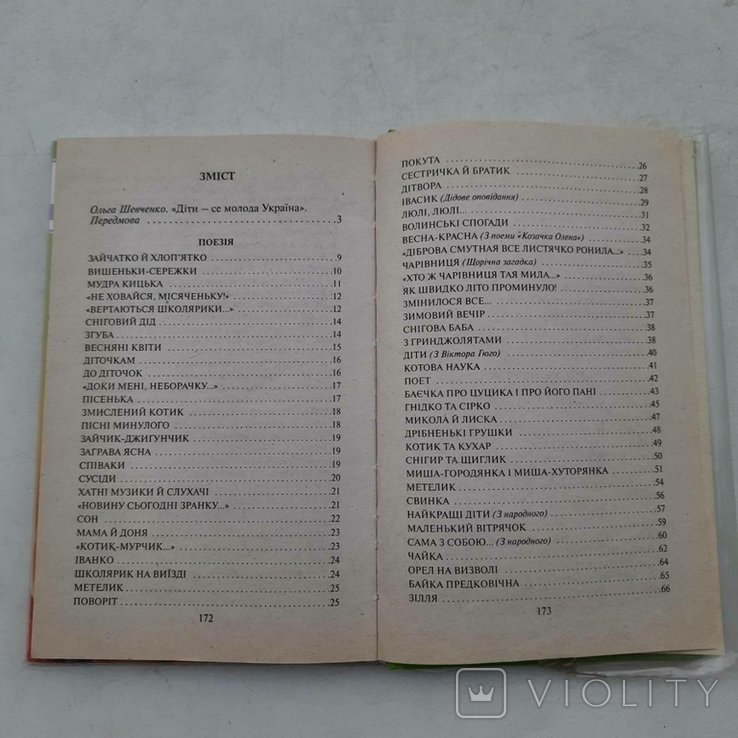 ЗМІСТ
Ольга Шевченко. «Діти – се молода Україна».
Передмова ........ 3
ПОЕЗІЯ
ЗАЙЧАТКО Й ХЛОП'ЯТКО ........ 9
ВИШЕНЬКИ-СЕРЕЖКИ ........ 10
МУДРА КИЦЬКА ........ 11
«НЕ ХОВАЙСЯ, МІСЯЧЕНЬКУ!» ........ 12
«ВЕРТАЮТЬСЯ ШКОЛЯРИКИ...» ........ 12
СНІГОВИЙ ДІД ........ 14
ЗГУБА ........ 14
ВЕСНЯНІ КВІТИ ........ 15
ДІТОЧКАМ ........ 16
ДО ДІТОЧОК ........ 16
«ДОКИ МЕНІ, НЕБОРАЧКУ...» ........ 17
ПІСЕНЬКА ........ 17
ЗМИСЛЕНИЙ КОТИК ........ 18
ПІСНІ МИНУЛОГО ........ 18
ЗАЙЧИК-ДЖИГУНЧИК ........ 19
ЗАГРАВА ЯСНА ........ 19
СПІВАКИ ........ 19
СУСІДИ ........ 20
ХАТНІ МУЗИКИ Й СЛУХАЧІ ........ 21
«НОВИНУ СЬОГОДНІ ЗРАНКУ...» ........ 21
СОН ........ 22
МАМА Й ДОНЯ ........ 23
«КОТИК-МУРЧИК...» ........ 23
ІВАНКО ........ 24
ШКОЛЯРИК НА ВИЇЗДІ ........ 24
МЕТЕЛИК ........ 25
ПОВОРІТ ........ 25
172
ПОКУТА ........ 26
СЕСТРИЧКА Й БРАТИК ........ 27
ДІТВОРА ........ 28
ІВАСИК (Дідове оповідання) ........ 29
ЛЮЛІ, ЛЮЛІ... ........ 31
ВОЛИНСЬКІ СПОГАДИ ........ 32
ВЕСНА-КРАСНА (З поеми «Козачка Олена») ........ 34
«ДІБРОВА СМУТНАЯ ВСЕ ЛИСТЯЧКО РОНИЛА...» ........ 34
ЧАРІВНИЦЯ (Щорічна загадка) ........ 36
«ХТО Ж ЧАРІВНИЦЯ ТАЯ МИЛА...» ........ 36
ЯК ШВИДКО ЛІТО ПРОМИНУЛО! ........ 37
ЗМІНИЛОСЯ ВСЕ... ........ 37
ЗИМОВИЙ ВЕЧІР ........ 37
СНІГОВА БАБА ........ 38
З ГРИНДЖОЛЯТАМИ ........ 38
ДІТИ (З Віктора Гюго) ........ 40
КОТОВА НАУКА ........ 41
ПОЕТ ........ 42
БАЄЧКА ПРО ЦУЦИКА І ПРО ЙОГО ПАНІ ........ 43
ГНІДКО ТА СІРКО ........ 45
МИКОЛА Й ЛИСКА ........ 47
ДРІБНЕНЬКІ ГРУШКИ ........ 48
КОТИК ТА КУХАР ........ 49
СНІГИР ТА ЩИГЛИК ........ 50
МИША-ГОРОДЯНКА І МИША-ХУТОРЯНКА ........ 51
МЕТЕЛИК ........ 54
СВИНКА ........ 56
НАЙКРАЩІ ДІТИ (З народного) ........ 57
МАЛЕНЬКИЙ ВІТРЯЧОК ........ 59
САМА З СОБОЮ... (З народного) ........ 60
ЧАЙКА ........ 62
ОРЕЛ НА ВИЗВОЛІ ........ 64
БАЙКА ПРЕДКОВІЧНА ........ 65
ЗІЛЛЯ ........ 66
173
VIOLITY